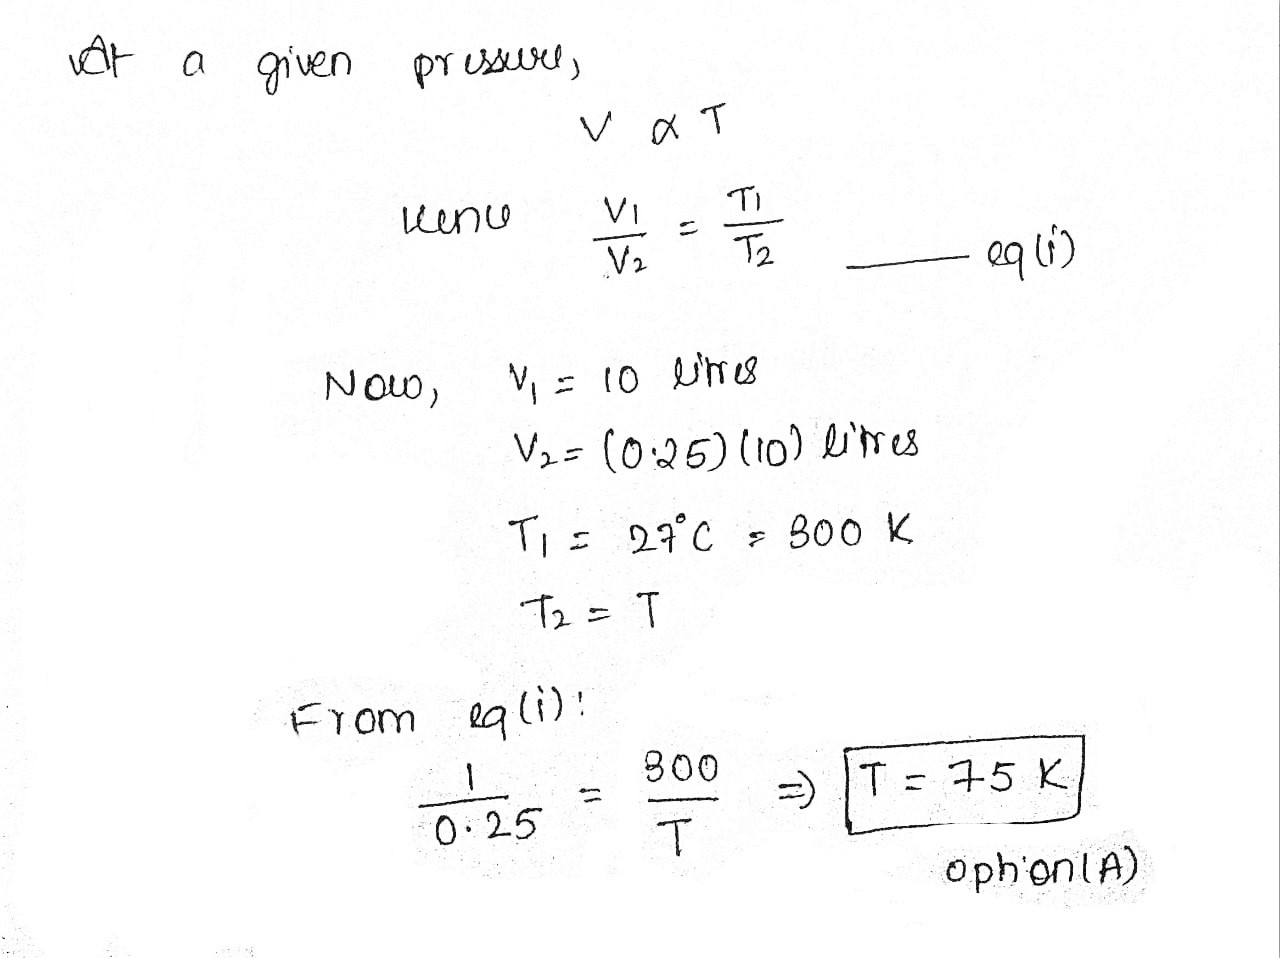 At a given pressure,
V ∝ T
Hence V1/V2 = T1/T2 —— eq(i)
Now, V1 = 10 litres
V2 = (0.25)(10) litres
T1 = 27°C = 300 K
T2 = T
From eq(i):
1/0.25 = 300/T ⇒ T = 75 K
option(A)